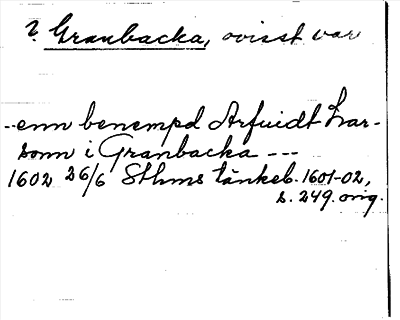 ? Granbacka, ovisst var
--enn benempd Arfuidt Lar-
sonn i Granbacka ---
1602 26/6 Sthms tänkeb. 1601-02,
s. 249. orig.